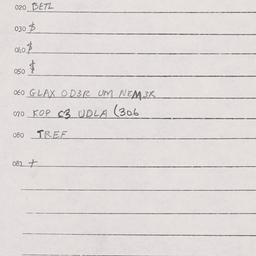 020 BETL
030 $
040 $
050 $
060 GLAX OD3R UM NEM3R
070 KOP C3 UDLA (306
080 TREF
081 +